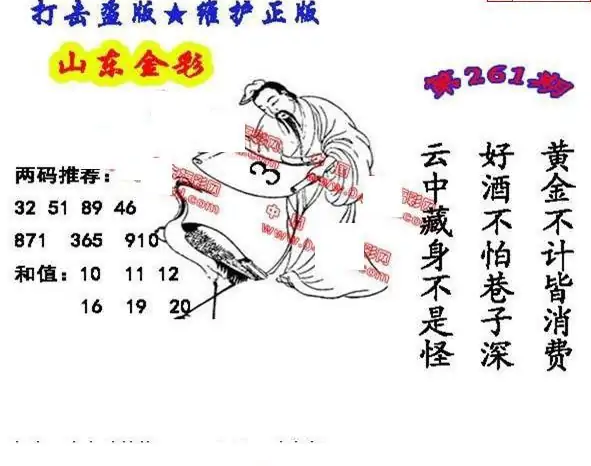 打击盗版★维护正版
山东金彩
第261期
两码推荐:
32 51 89 46
871 365 910
和值: 10 11 12
16 19 20
3
黄金不计皆消费
好酒不怕巷子深
云中藏身不是怪